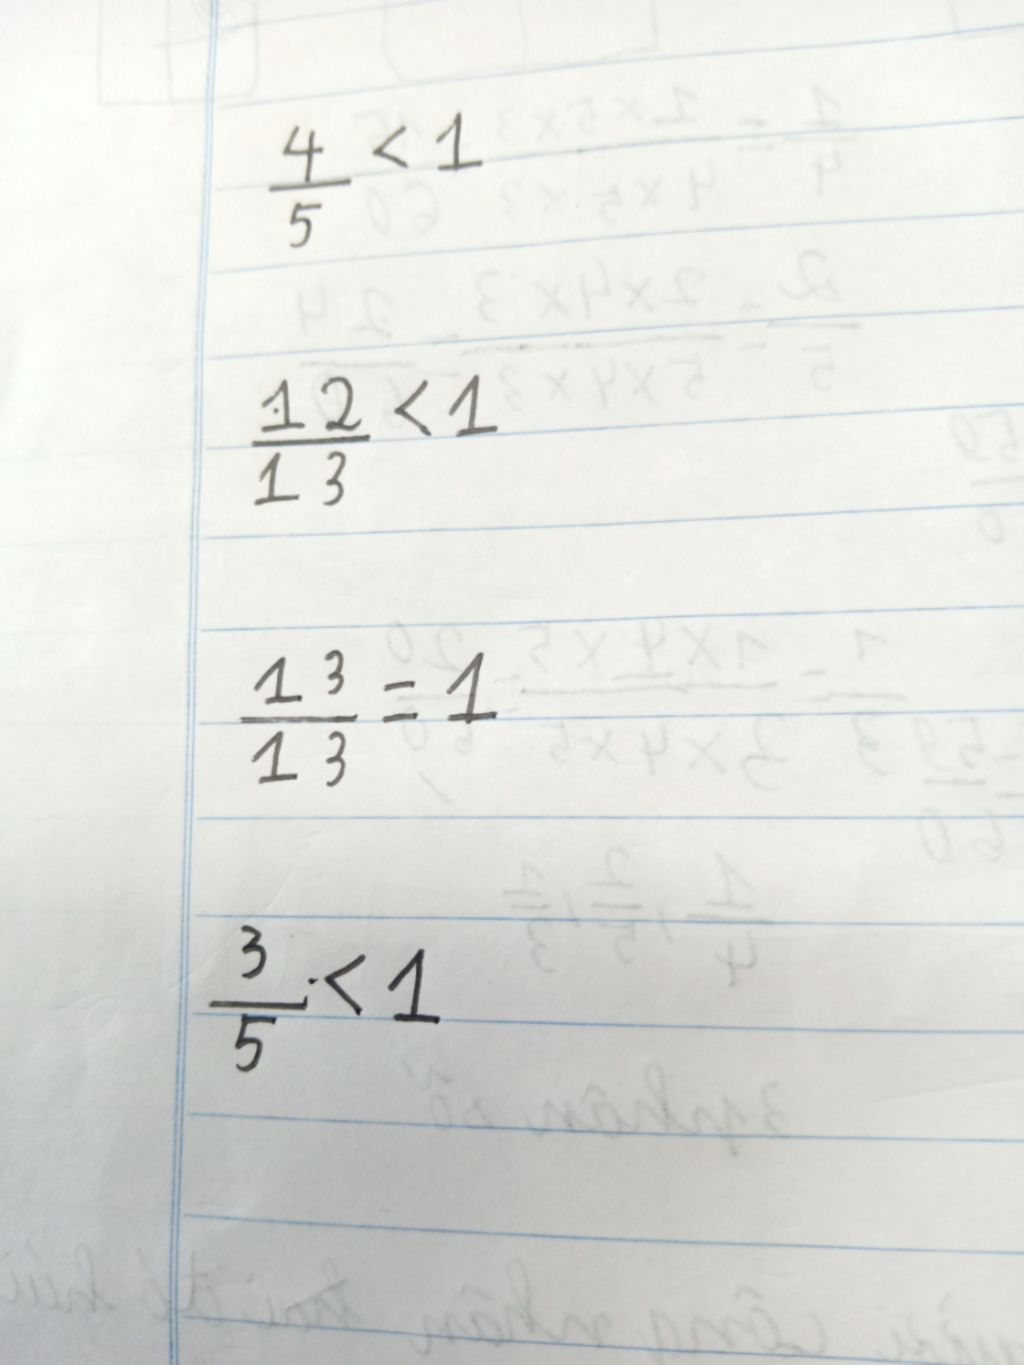 4/5 < 1
12/13 < 1
13/13 = 1
3/5 < 1